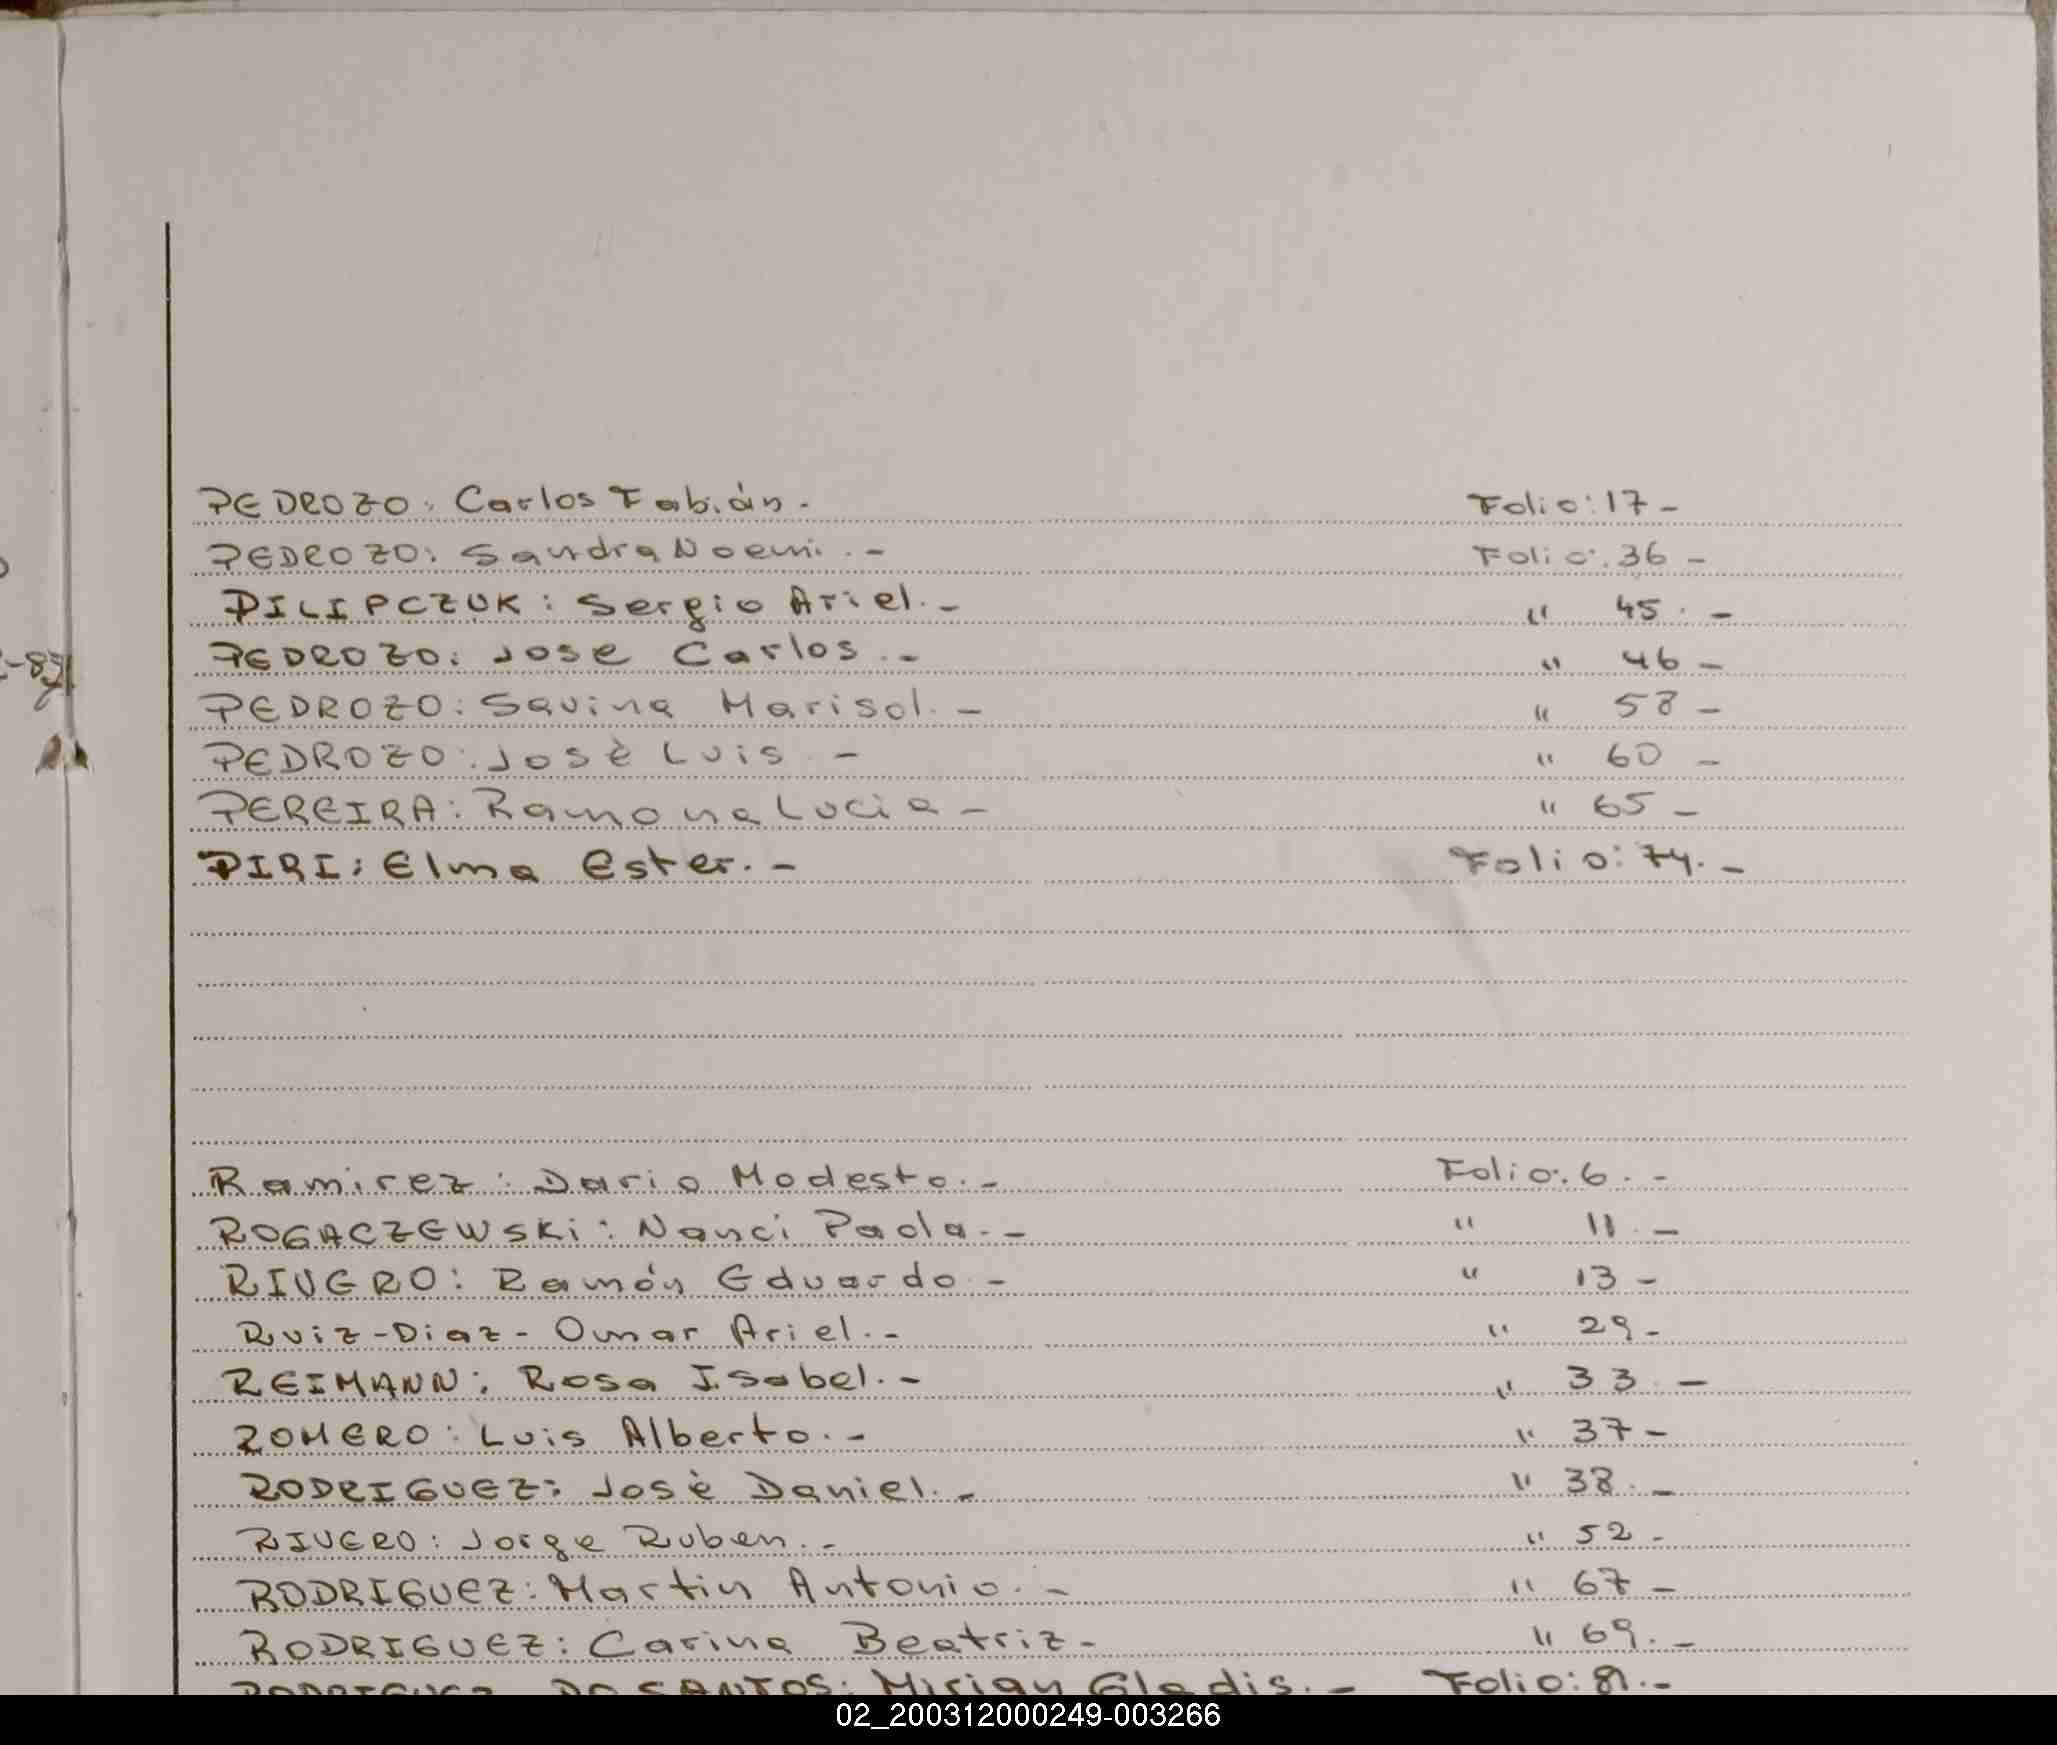 PEDROZO: Carlos Fabián.- Folio: 17-
PEDROZO: Sandra Noemi.- Folio: 36-
PILIPCZUK: Sergio Ariel.- " 45.-
PEDROZO: Jose Carlos.- " 46-
PEDROZO: Savina Marisol.- " 58-
PEDROZO: Josè Luis.- " 60-
PEREIRA: Ramona Lucia- " 65-
PIRI: Elma Ester.- Folio: 74.-
Ramirez: Dario Modesto.- Folio: 6.-
ROGACZEWSKi: Nanci Paola.- " 11.-
RIVERO: Ramón Eduardo.- " 13-
Ruiz-Diaz- Omar Ariel.- " 29-
REIMANN: Rosa Isabel.- " 33.-
ROMERO: Luis Alberto.- " 37-
RODRIGUEZ: Josè Daniel.- " 38.-
RIVERO: Jorge Ruben.- " 52-
RODRIGUEZ: Martin Antonio.- " 67-
RODRIGUEZ: Carina Beatriz- " 69.-
RODRIGUEZ DO SANTOS: Mirian Gladis.- Folio: 81.-
02_200312000249-003266